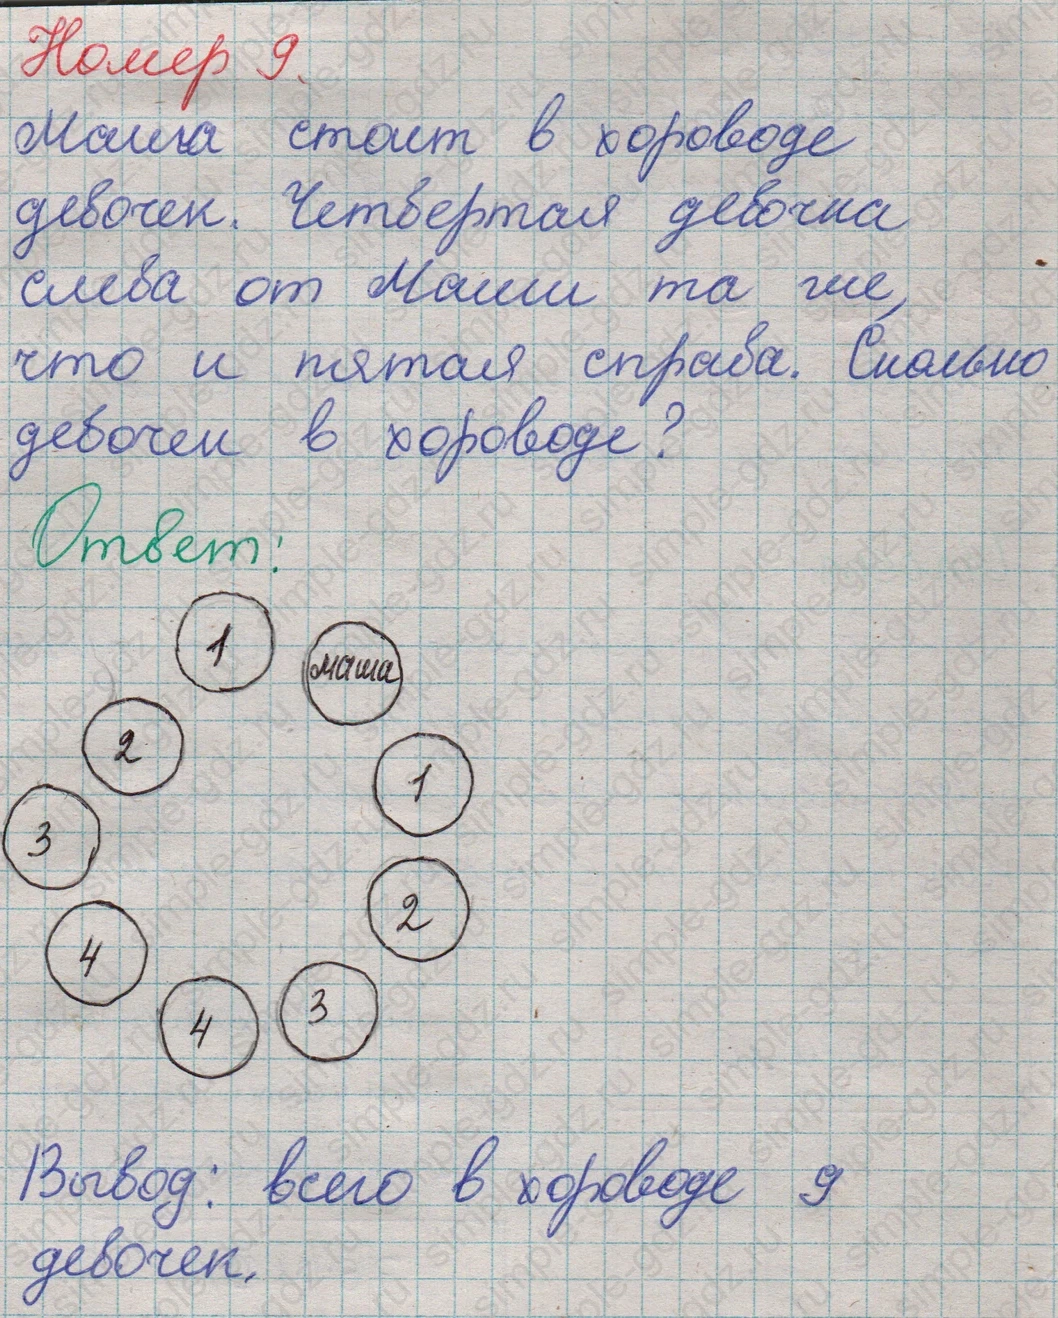 Номер 9.
Маша стоит в хороводе
девочек. Четвертая девочка
слева от Маши та же,
что и пятая справа. Сколько
девочек в хороводе?
Ответ:
1
маша
2
1
3
2
4
3
4
Вывод: всего в хороводе 9
девочек.